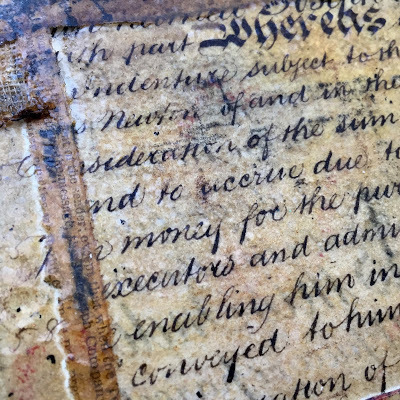 Whereas
part
Indenture subject to th
Newton of and in the
nsideration of the sum
and to accrue due to
money for the pur
executors and admi
enabling him in
conveyed to him
ation of